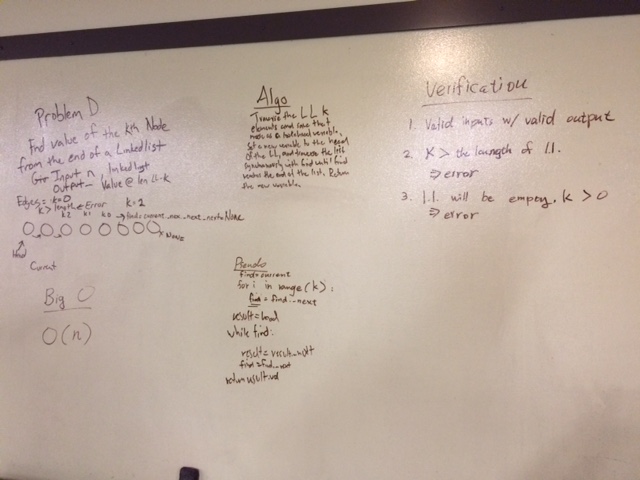 Problem D
Find value of the kth Node
from the end of a Linked list
Input n linked list
Output - Value @ len LL-k
Edges: k=0
k > length → Error k=2
k2 k1 k0 → find = current._next._next._next = None
None
Head
Current
Big O
O(n)
Algo
Traverse the LL k
elements and save that
node as a variable.
Set a new variable to the head
of the LL, and traverse the list
synchronously with find until find
reaches the end of the list. Return
the new variable.
Pseudo
find = current
for i in range(k):
find = find._next
result = head
while find:
result = result._next
find = find._next
return result.val
Verification
1. Valid inputs w/ valid output
2. K > the leangth of l.l.
⇒ error
3. l.l. will be empey. k > 0
⇒ error